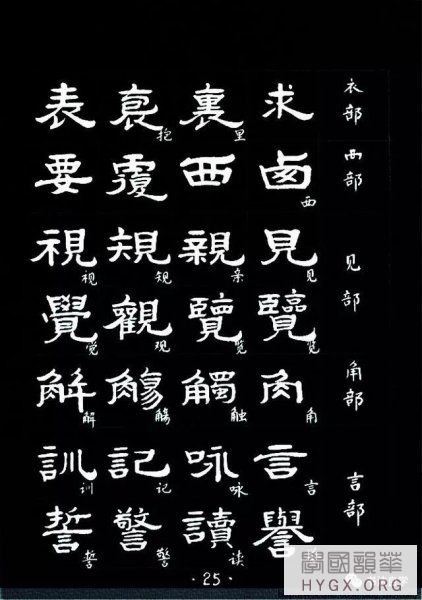 衣部
求 裏里 袌抱 表
西部
卥西 西 覆 要
见部
見见 親亲 規规 視视
覽览 覽览 觀观 覺觉
角部
角角 觸触 觴觞 解解
言部
言言 咏咏 記记 訓训
譽 讀读 警警 誓誓
·25·
學國韻華
HYGX.ORG